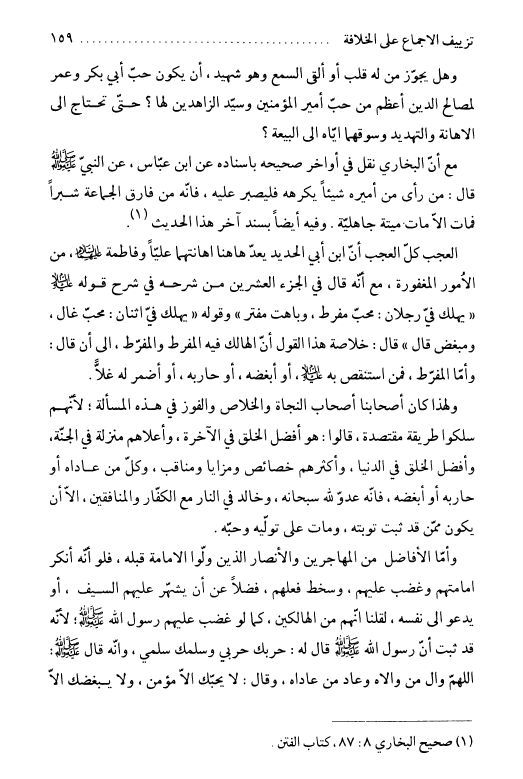 تزييف الاجماع على الخلافة ........................................ ١٥٩
وهل يجوّز من له قلب أو ألق السمع وهو شهيد ، أن يكون حبّ أبي بكر وعمر
لمصالح الدين أعظم من حبّ أمير المؤمنين وسيّد الزاهدين لها ؟ حتّى تحتاج الى
الاهانة والتهديد وسوقهما ايّاه الى البيعة ؟
مع أنّ البخاري نقل في أواخر صحيحه باسناده عن ابن عبّاس ، عن النبيّ ﷺ
قال : من رأى من أميره شيئاً يكرهه فليصبر عليه ، فانّه من فارق الجماعة شبراً
فمات الاّ مات ميتة جاهليّة . وفيه أيضاً بسند آخر هذا الحديث (١).
العجب كلّ العجب أنّ ابن أبي الحديد يعدّ هاهنا اهانتهما عليّاً وفاطمة عليهما السلام ، من
الأمور المغفورة ، مع أنّه قال في الجزء العشرين من شرحه في شرح قوله عليه السلام
« يهلك فيّ رجلان : محبّ مفرط ، وباهت مفتر » وقوله « يهلك فيّ اثنان : محبّ غال ،
ومبغض قال » قال : خلاصة هذا القول أنّ الهالك فيه المفرط والمفرّط ، الى أن قال :
وأمّا المفرّط ، فمن استنقص به عليه السلام ، أو أبغضه ، أو حاربه ، أو أضمر له غلاًّ .
ولهذا كان أصحابنا أصحاب النجاة والخلاص والفوز في هذه المسألة ؛ لأنّهم
سلكوا طريقة مقتصدة ، قالوا : هو أفضل الخلق في الآخرة ، وأعلاهم منزلة في الجنّة،
وأفضل الخلق في الدنيا ، وأكثرهم خصائص ومزايا ومناقب ، وكلّ من عاداه أو
حاربه أو أبغضه ، فانّه عدوّ لله سبحانه ، وخالد في النار مع الكفّار والمنافقين ، الاّ أن
يكون ممّن قد ثبت توبته ، ومات على تولّيه وحبّه .
وأمّا الأفاضل من المهاجرين والأنصار الذين ولّوا الامامة قبله ، فلو أنّه أنكر
امامتهم وغضب عليهم ، وسخط فعلهم ، فضلاً عن أن يشهّر عليهم السيف ، أو
يدعو الى نفسه ، لقلنا انّهم من الهالكين ، كما لو غضب عليهم رسول الله ﷺ ؛ لأنّه
قد ثبت أنّ رسول الله ﷺ قال له : حربك حربي وسلمك سلمي ، وانّه قال ﷺ :
اللهمّ وال من والاه وعاد من عاداه ، وقال : لا يحبّك الاّ مؤمن ، ولا يبغضك الاّ
(١) صحيح البخاري ٨ : ٨٧ ، كتاب الفتن .